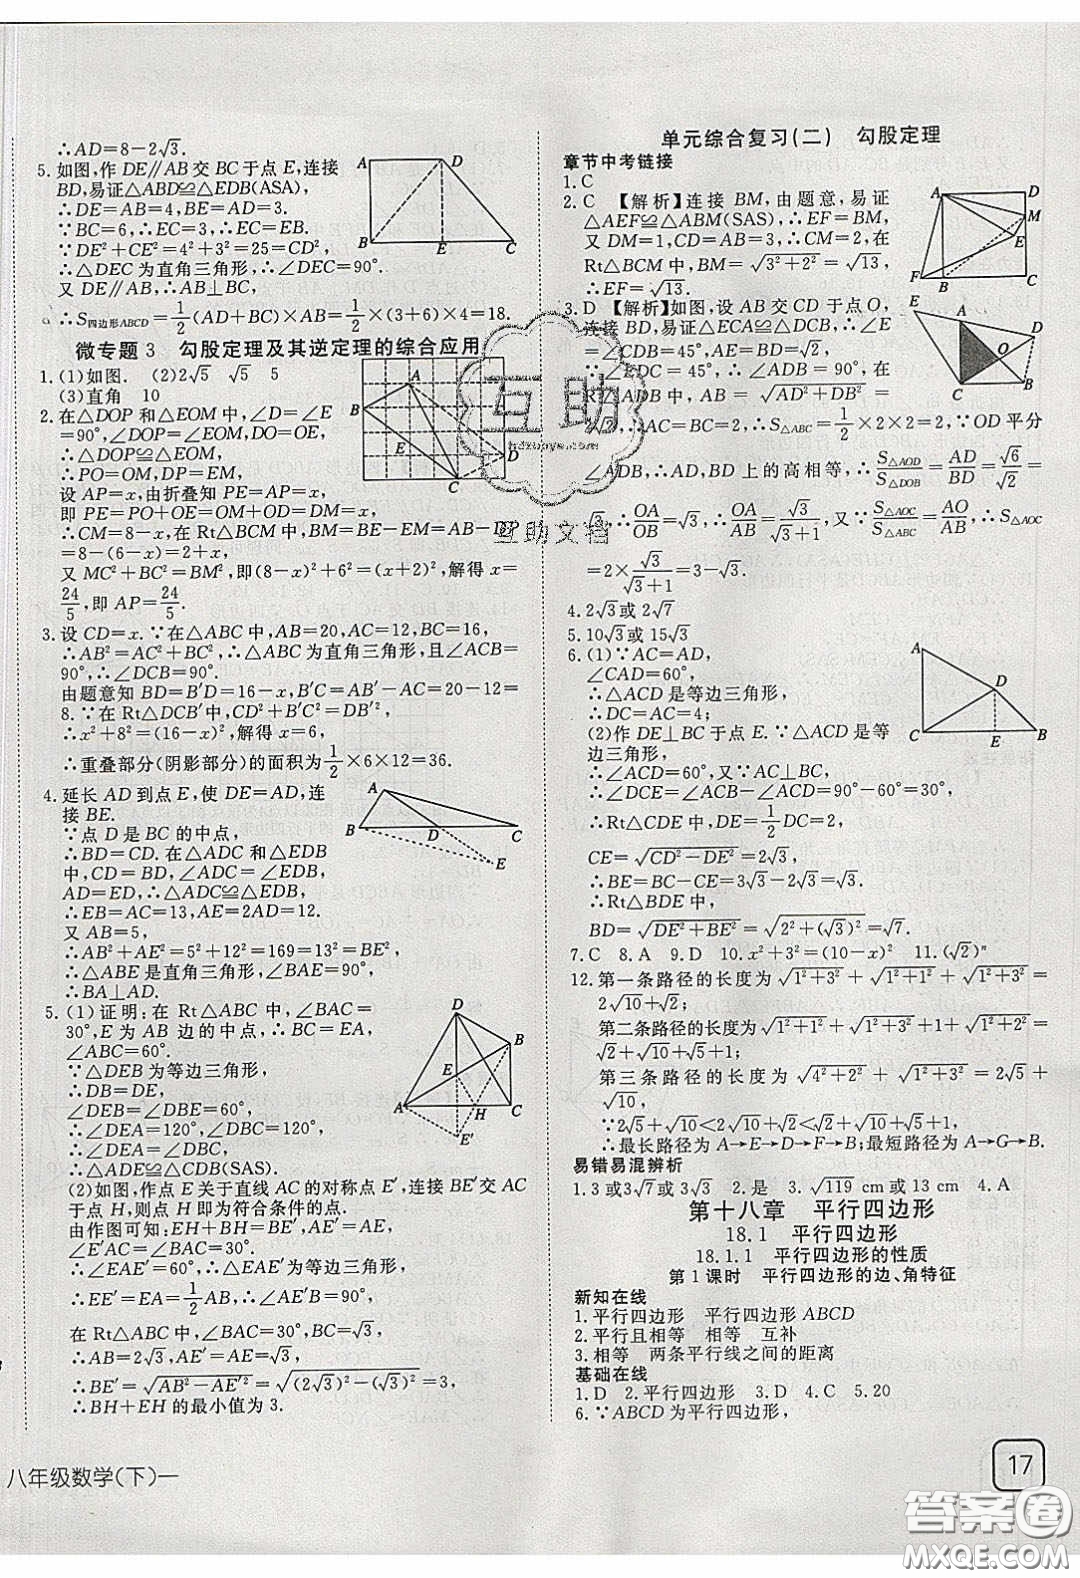 ∴AD=8−2√3.
5. 如图,作 DE∥AB 交 BC 于点 E,连接
BD,易证△ABD≌△EDB(ASA),
∴DE=AB=4,BE=AD=3.
∵BC=6,∴EC=3,∴EC=EB.
∵DE²+CE²=4²+3²=25=CD²,
∴△DEC 为直角三角形,∴∠DEC=90°.
又 DE∥AB,∴AB⊥BC,
∴S四边形ABCD=1/2(AD+BC)×AB=1/2×(3+6)×4=18.
微专题 3 勾股定理及其逆定理的综合应用
1.(1)如图. (2)2√5 √5 5
(3)直角 10
2.在△DOP 和△EOM 中,∠D=∠E
=90°,∠DOP=∠EOM,DO=OE,
∴△DOP≌△EOM,
∴PO=OM,DP=EM,
设 AP=x,由折叠知 PE=AP=x,
即 PE=PO+OE=OM+OD=DM=x.
∴CM=8−x,在 Rt△BCM 中,BM=BE−EM=AB−DP
=8−(6−x)=2+x,
又 MC²+BC²=BM²,即(8−x)²+6²=(x+2)²,解得 x=
24/5,即 AP=24/5.
3.设 CD=x.∵在△ABC 中,AB=20,AC=12,BC=16,
∴AB²=AC²+BC²,∴△ABC 为直角三角形,且∠ACB=
90°,∴∠DCB′=90°.
由题意知 BD=B′D=16−x,B′C=AB′−AC=20−12=
8.∵在 Rt△DCB′中,CD²+B′C²=DB′²,
∴x²+8²=(16−x)²,解得 x=6,
∴重叠部分(阴影部分)的面积为1/2×6×12=36.
4. 延长 AD 到点 E,使 DE=AD,连
接 BE.
∵点 D 是 BC 的中点,
∴BD=CD.在△ADC 和△EDB
中,CD=BD,∠ADC=∠BDE,
AD=ED,∴△ADC≌△EDB,
∴EB=AC=13,AE=2AD=12.
又 AB=5,
∴AB²+AE²=5²+12²=169=13²=BE²,
∴△ABE 是直角三角形,∠BAE=90°,
∴BA⊥AD.
5.(1)证明:在 Rt△ABC 中,∠BAC=
30°,E 为 AB 边的中点,∴BC=EA,
∠ABC=60°.
∵△DEB 为等边三角形,
∴DB=DE,
∠DEB=∠DBE=60°,
∴∠DEA=120°,∠DBC=120°,
∴∠DEA=∠DBC,
∴△ADE≌△CDB(SAS).
(2)如图,作点 E 关于直线 AC 的对称点 E′,连接 BE′交 AC
于点 H,则点 H 即为符合条件的点.
由作图可知:EH+BH=BE′,AE′=AE,
∠E′AC=∠BAC=30°,
∴∠EAE′=60°,∴△EAE′为等边三角形,
∴EE′=EA=1/2AB,∴∠AE′B=90°,
在 Rt△ABC 中,∠BAC=30°,BC=√3,
∴AB=2√3,AE′=AE=√3,
∴BE′=√(AB²−AE′²)=√((2√3)²−(√3)²)=3,
∴BH+EH 的最小值为 3.
八年级数学(下)一
单元综合复习(二) 勾股定理
章节中考链接
1.C
2.C 【解析】连接 BM,由题意,易证
△AEF≌△ABM(SAS),∴EF=BM,
又 DM=1,CD=3,∴CM=2,在
Rt△BCM 中,BM=√(3²+2²)=√13,
∴EF=√13.
3.D 【解析】如图,设 AB 交 CD 于点 O,
连接 BD,易证△ECA≌△DCB,∴∠E
=∠CDB=45°,AE=BD=√2.
∵∠EDC=45°,∴∠ADB=90°,在
Rt△ADB 中,AB=√(AD²+DB²)=
2√2,∴AC=BC=2,∴S△ABC=1/2×2×2=2,∵OD 平分
∠ADB,∴AD,BD 上的高相等,∴S△AOD/S△DOB=AD/BD=√6/√2=
√3,∴OA/OB=√3,∴OA/AB=√3/(√3+1),又∵S△AOC/S△ABC=AO/AB,∴S△AOC
=2×√3/(√3+1)=3−√3.
4.2√3或 2√7
5.10√3或 15√3
6.(1)∵AC=AD,
∠CAD=60°,
∴△ACD 是等边三角形,
∴DC=AC=4;
(2)作 DE⊥BC 于点 E.∵△ACD 是等
边三角形,
∴∠ACD=60°,又∵AC⊥BC,
∴∠DCE=∠ACB−∠ACD=90°−60°=30°,
∴Rt△CDE 中,DE=1/2DC=2,
CE=√(CD²−DE²)=2√3,
∴BE=BC−CE=3√3−2√3=√3.
∴Rt△BDE 中,
BD=√(DE²+BE²)=√(2²+(√3)²)=√7.
7.C 8.A 9.D 10.x²+3²=(10−x)² 11.(√2)ⁿ
12.第一条路径的长度为√(1²+3²)+√(1²+1²)+√(1²+3²)=
2√10+√2;
第二条路径的长度为√(1²+1²)+√(1²+3²)+1+√(1²+2²)=
√2+√10+√5+1;
第三条路径的长度为√(4²+2²)+√(1²+3²)=2√5+
√10,
∵2√5+√10<2√10+√2<√2+√10+√5+1,
∴最长路径为 A→E→D→F→B;最短路径为 A→G→B.
易错易混辨析
1.3 或3√7或3√3 2.是 3.√119 cm 或 13 cm 4.A
第十八章 平行四边形
18.1 平行四边形
18.1.1 平行四边形的性质
第 1 课时 平行四边形的边、角特征
新知在线
1.平行四边形 平行四边形 ABCD
2.平行且相等 相等 互补
3.相等 两条平行线之间的距离
基础在线
1.D 2.平行四边形 3.D 4.C 5.20
6.∵ABCD 为平行四边形,
17
互助
互助文档
答案圈
MXQE.COM